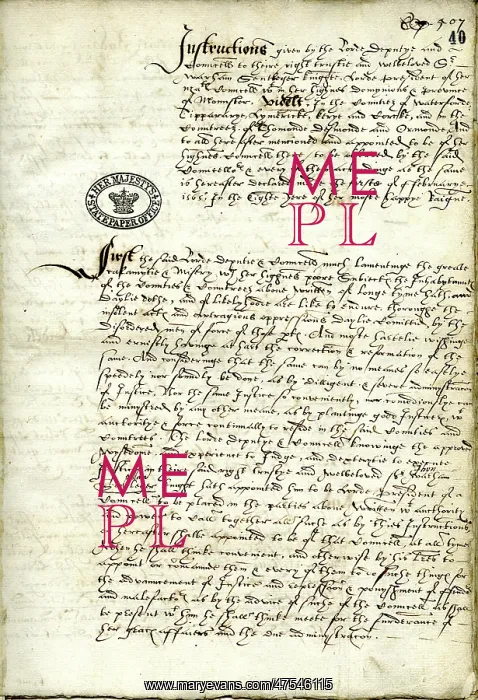 407
40
Instructions given by the Lorde deputye and
Councell to theire right trustie and welbeloved Sr
Warham Sentleger knighte Lorde president of her
Councell in her highnes domynions & province
of Mounster. Videlt. In the Counties of Waterforde
Tipperarye, Lymericke, Kerye and Corcke, and in the
Countreys of Thomonde desmonde and Ormonde And
to all hereafter mentioned and appointed to be of her
highnes Councell there to be by the said
Councellors & every the same
is hereafter declared the firste of Februarye
1565. In the Eighte yere of her moste happye Raigne.
HER MAJESTY'S
STATE PAPER OFFICE
ME
PL
First the said Lorde deputie & Councell much lamentinge the greate
Calamytie & Misery her highnes poore Subiects the Inhabytants
of the Counties & Countreys above written of longe tyme hath and
daylie dothe, and of likelyhode are like to endure throughe the
insolent acts and outragious oppressions daylie comitted by the
disordered men of
and ernestly havinge at hart the correction & reformation of the
same. And consideringe that the same can by no meanes so easelye
speedely nor soundly be done, as by diligent & severe administracon
of Justice, Nor the same Justice so conveniently, nor
be ministred by any other meane, as by plantinge good Justices
authoritye & force continually to reside in the said Counties and
Countreis. The Lorde deputye & Councell knowinge the approved
wysdome, experience to Judge, and dexteritie to
said right trustye and welbeloved Sr Warham
hath appointed him to be Lorde President of a
Councell to be placed in the parties above written authority
and power to call together all such as by thies Instructions
hereafter shalbe appointed to be of that Councell, at all tymes
when he shall thinke convenient, and otherwise by his lres to
appoint or comaunde them & every of them to do suche things for
the advauncement of Justice and repression & ponishment of
and malefactors, as by the advice of suche of the Councell as shall
be present him he shall thinke meete for the furderance of
her affaires and the due administracon.
ME
PL
www.maryevans.com/47546115